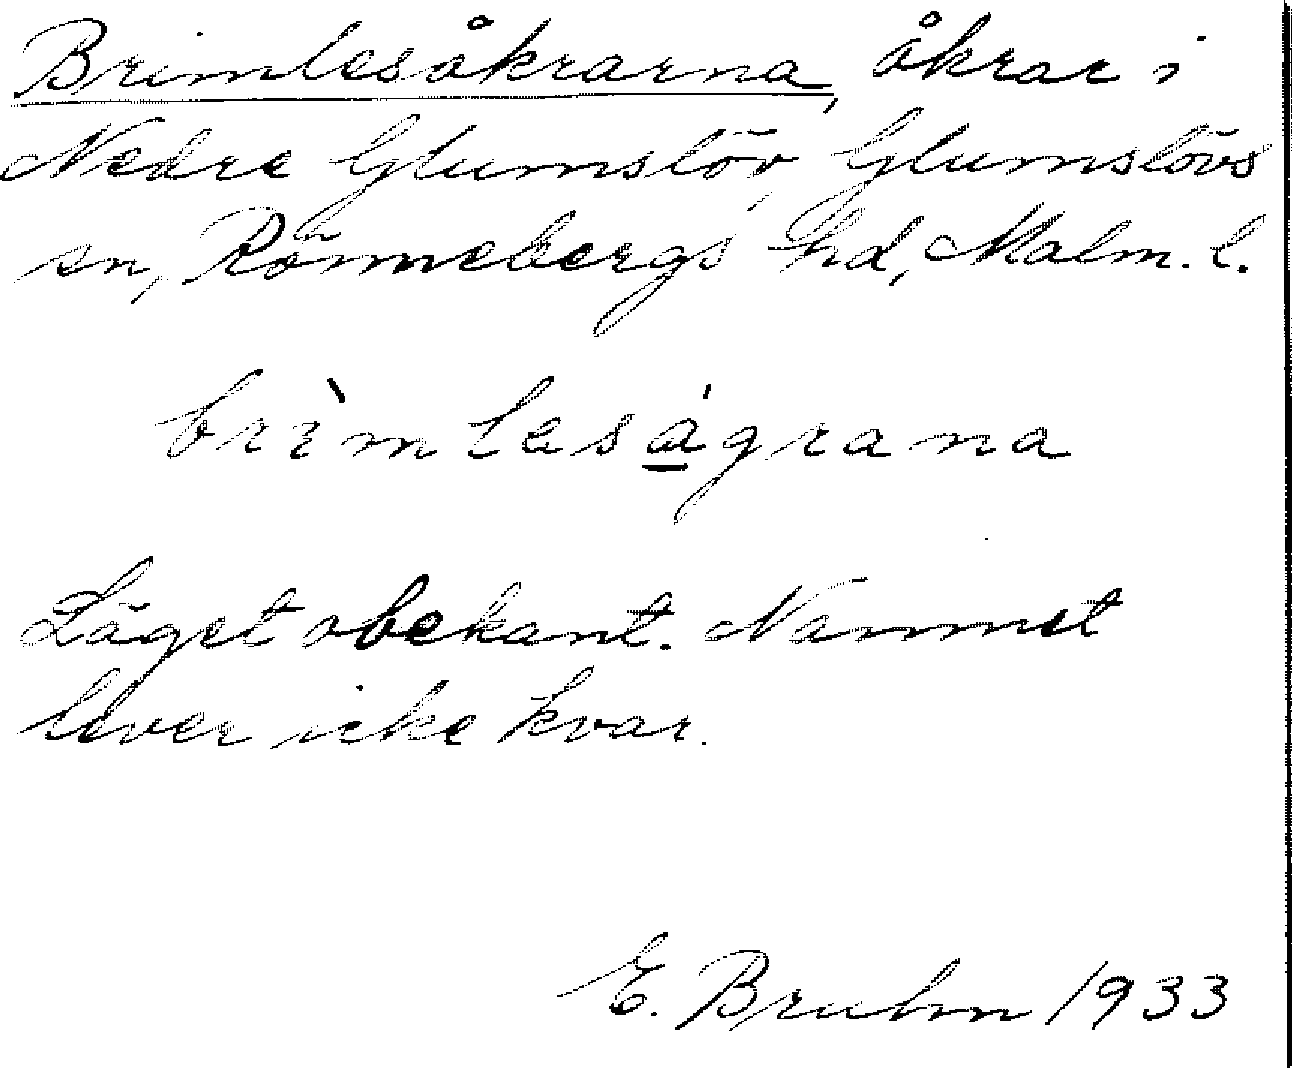 Brimlesåkrarna, åkrar i
Nedre Glumslöv, Glumslövs
sn, Rönnebergs hd, Malm. l.
brìmlesá̲grana
Läget obekant. Namnet
lever icke kvar.
E. Bruhn 1933